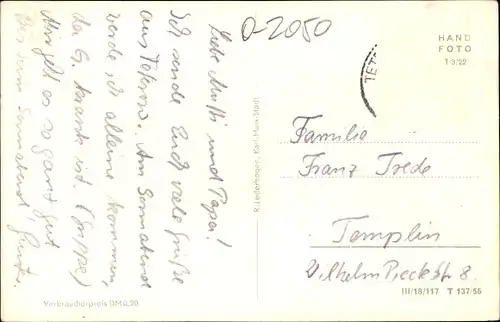 O-2050
Liebe Mutti und Papa!
Ich sende Euch viele Grüße
aus Teterow. Am Sonnabend
werde ich alleine kommen,
da G. krank ist. (Grippe)
Mir geht es so ganz gut
Bis zum Sonnabend!
HAND
FOTO
T 3/22
TET
Familie
Franz Trede
Templin
Wilhelm Pieck Str 8.
R. Lederbogen, Karl-Marx-Stadt
Verbraucherpreis DM 0,20
III/18/117 T 137/55